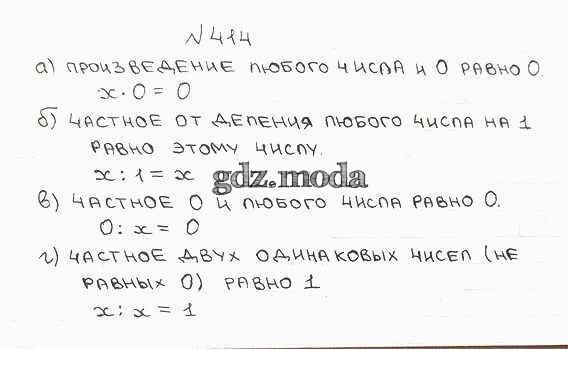 №414
а) ПРОИЗВЕДЕНИЕ ЛЮБОГО ЧИСЛА И 0 РАВНО 0.
x·0=0
б) ЧАСТНОЕ ОТ ДЕЛЕНИЯ ЛЮБОГО ЧИСЛА НА 1
РАВНО ЭТОМУ ЧИСЛУ.
x:1=x
gdz.moda
в) ЧАСТНОЕ 0 И ЛЮБОГО ЧИСЛА РАВНО 0.
0:x=0
г) ЧАСТНОЕ ДВУХ ОДИНАКОВЫХ ЧИСЕЛ (НЕ
РАВНЫХ 0) РАВНО 1
x:x=1